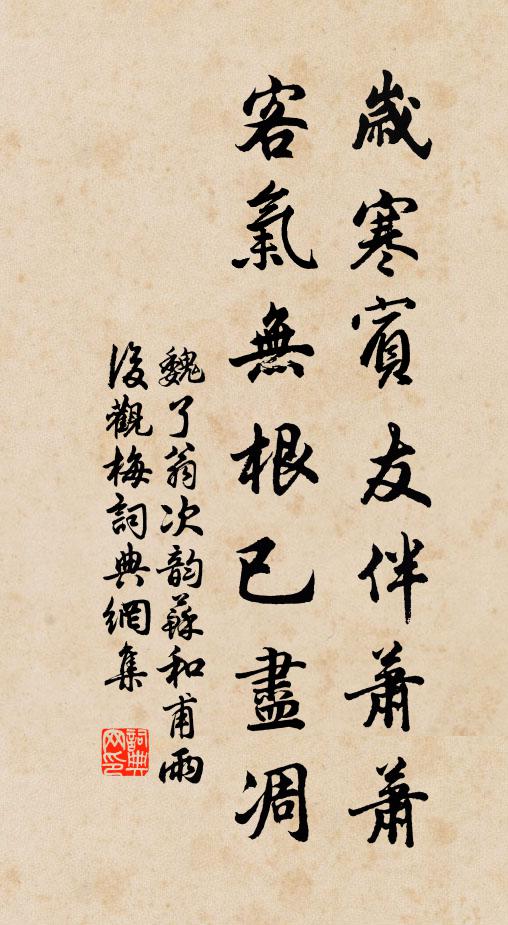 歲寒賓友伴蕭蕭
客氣無根已盡凋
魏了翁次韵蘇和甫雨
後觀梅詞典網集
詞典
网印